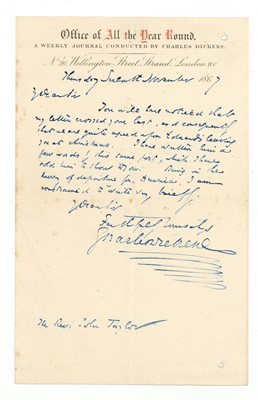 Office of All the Year Round,
A WEEKLY JOURNAL CONDUCTED BY CHARLES DICKENS.
No 26, Wellington Street, Strand, London W.C.
Thursday Seventh November 1867
My Dear Sir
You will have noticed that
my letter crossed your last, and consequently
that we are quite agreed after Edward's leaving
you at Christmas. I have written him a
few words by this same post, which I have
told him to shew to you. Being in the
hurry of departure for America, I am
constrained to write very briefly.
My Dear Sir
Faithfully Yours always
Charles Dickens
The Rev: John Taylor